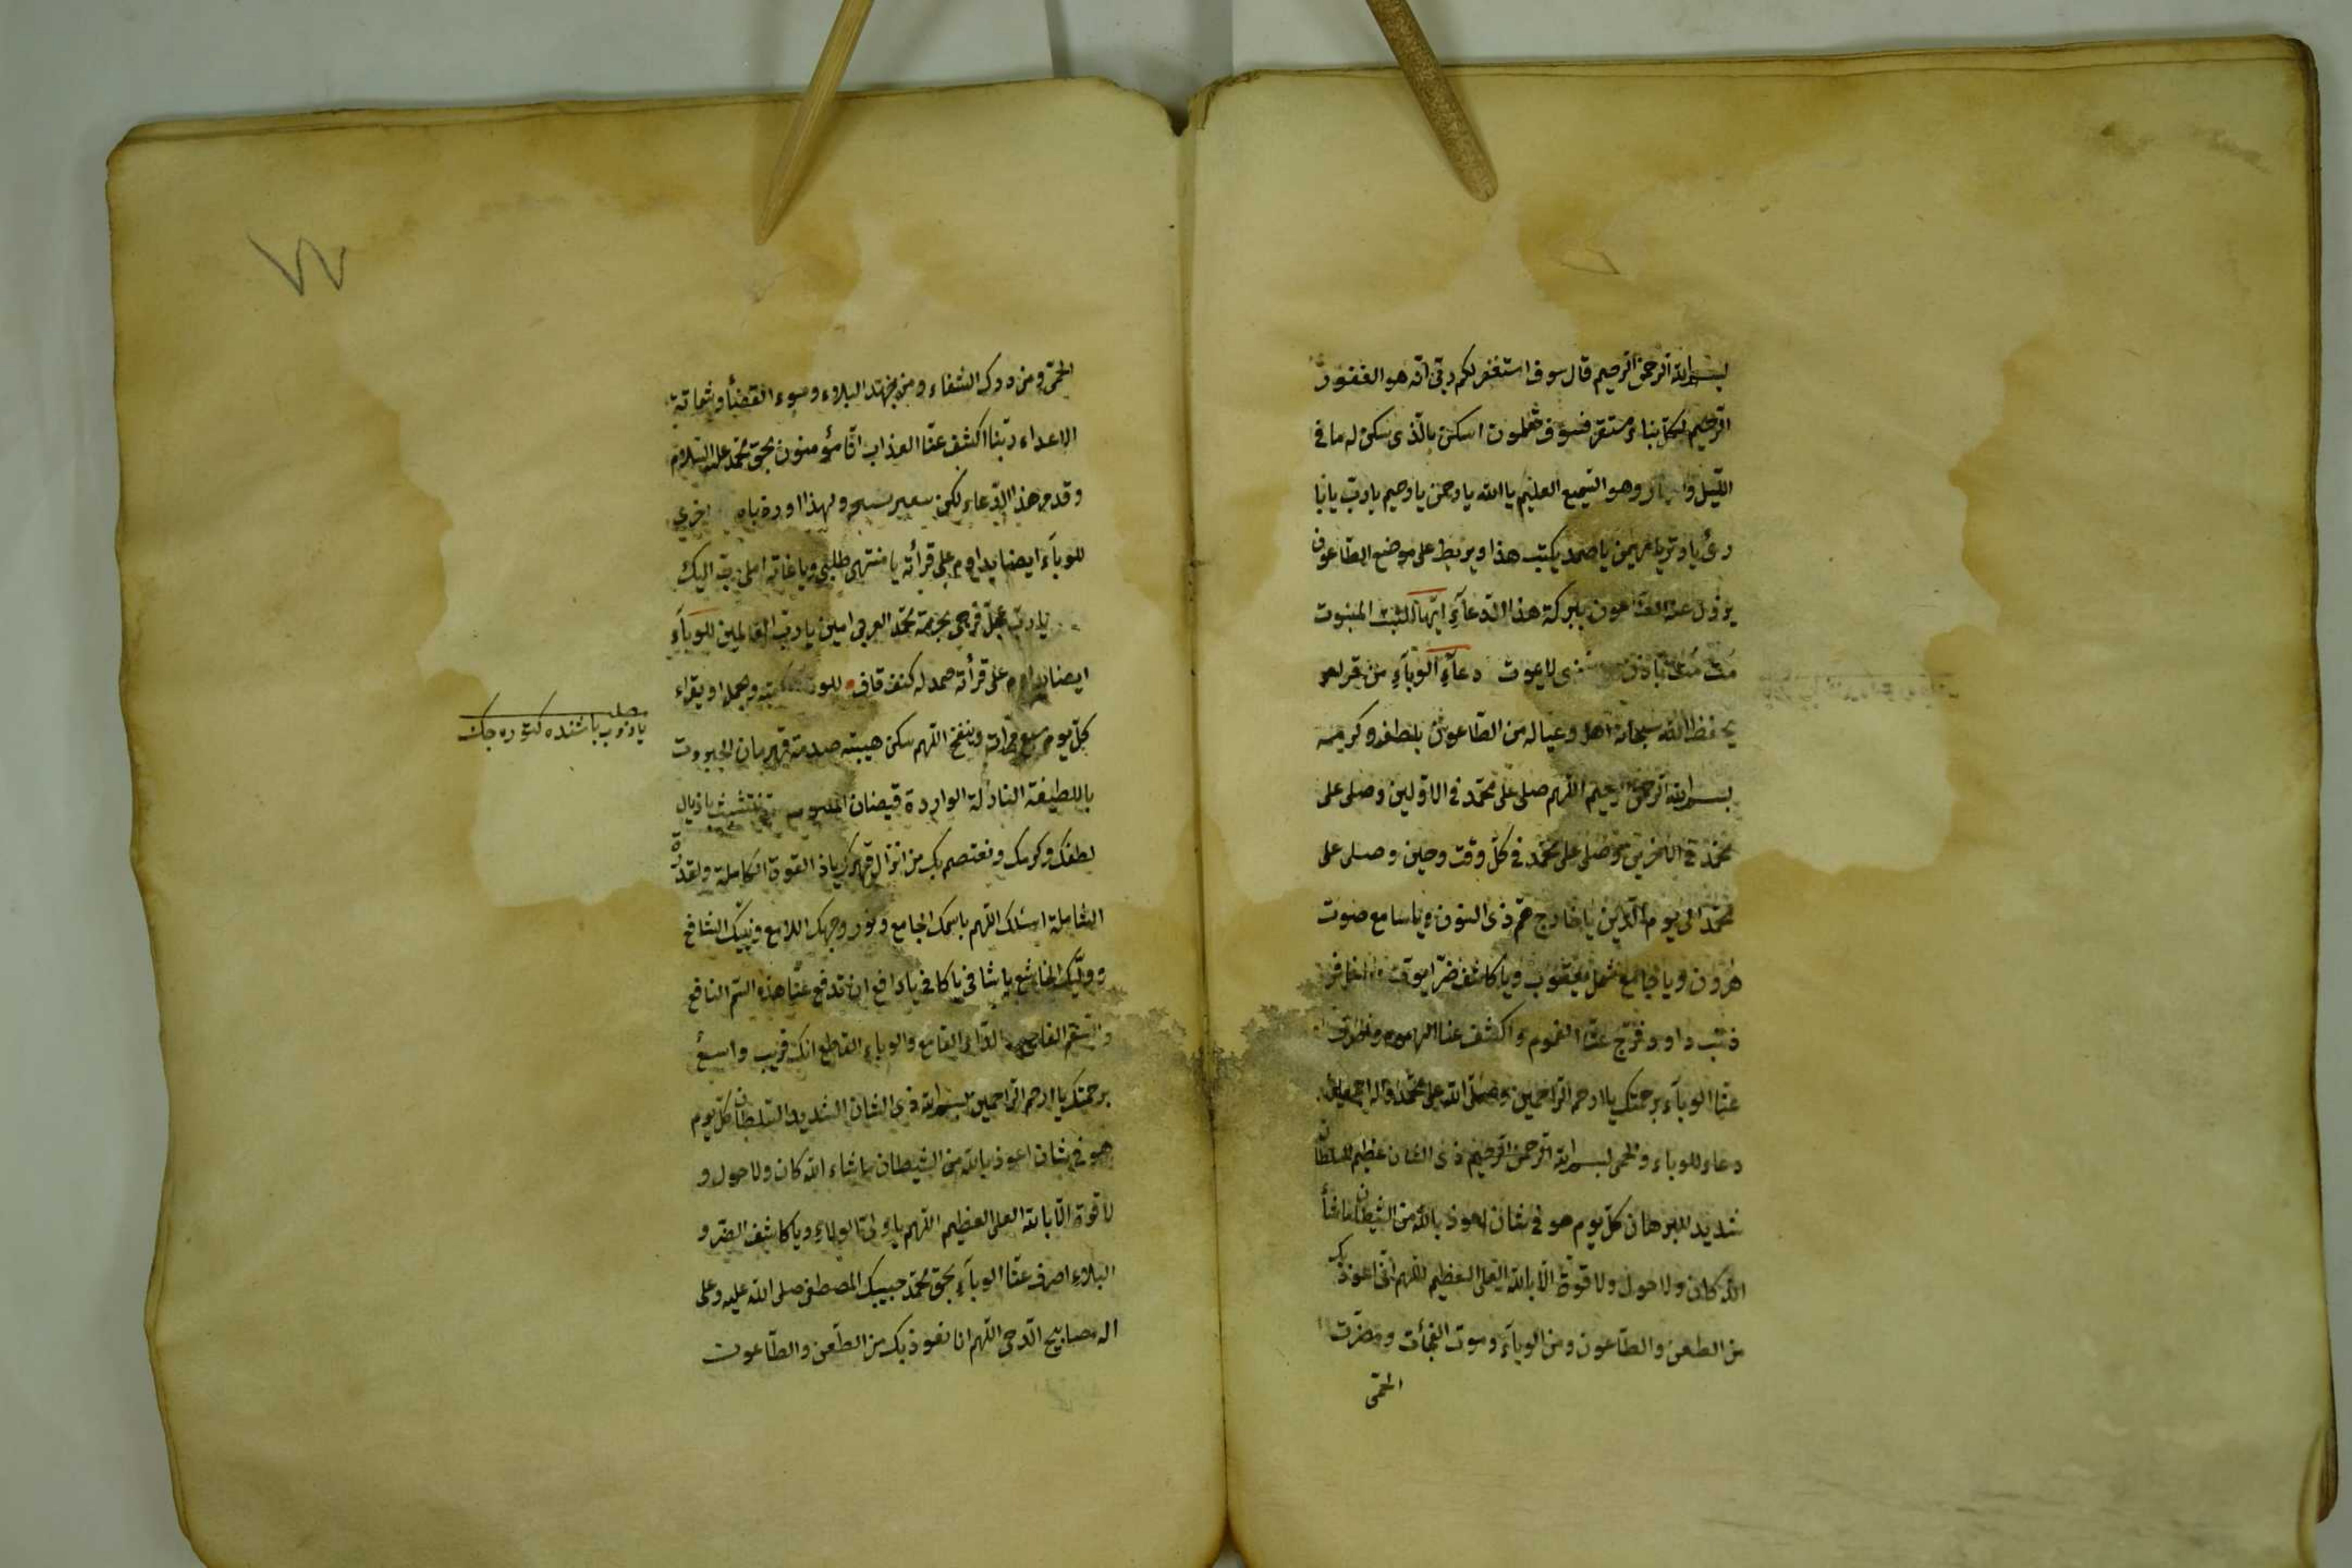 بسم الله الرحمن الرحيم قال سوف استغفر لكم ربى انه هو الغفور
الرحيم لكل بناء مستقر فسوف تعملون اسكن بالذى سكن له ما فى
الليل و وهو السميع العليم يا الله يا رحمن يا رحيم يا رب يا
يا صمد يكتب هذا ويربط على موضع الطاعون
يزول عنه الطاعون ببركة هذا الدعاء ايها المبثوت
لا يموت دعاء الوباء من قرأه
يحفظ الله سبحانه اهله وعياله من الطاعون بلطفه وكرمه
بسم الله الرحمن الرحيم اللهم صلى على محمد فى الاولين وصلى على
محمد فى الاخرين وصلى على محمد فى كل وقت وحين وصلى على
محمد الى يوم الدين يا فارج هم ذى النون ويا سامع صوت
هرون ويا جامع شمل يعقوب ويا كاشف ضر ايوب
ذنب داود فرج عنا الغموم واكشف عنا الهموم
عنا الوباء برحمتك يا ارحم الراحمين وصلى الله على محمد واله اجمعين
دعاء للوباء والحمى بسم الله الرحمن الرحيم ذى الشان عظيم السلطان
شديد البرهان كل يوم هو فى شان اعوذ بالله من الشيطان ما شأ
الله كان ولا حول ولا قوة الا بالله العلى العظيم اللهم انى اعوذ بك
من الطعن والطاعون ومن الوباء وموت الفجأت ومضرت
الحمى
الحمى ومن درك الشقاء ومن جهد البلاء وسوء القضأ وشماتة
الاعداء ربنا اكشف عنا العذاب انا مؤمنون بحق محمد عليه السلام
وقدم هذا الدعاء لكن ولهذا اخرى
للوباء ايضا يداوم على قرأته يا منتهى طلبى ويا غاية املى اليك
يا رب عجل فرجى بحرمة محمد العربى امين يا رب العالمين للوباء
ايضا يداوم على قرأته او يقراء
كل يوم سبع مرات وينفخ اللهم سكن هيبته صدمة قهرمان الجبروت
باللطيفة النازلة الواردة فيضان نتشبث باذيال
لطفك وكرمك ونعتصم بك من انزال قهرك يا ذا القوة الكاملة والقدرة
الشاملة اسئلك اللهم باسمك الجامع ونور وجهك اللامع ونبيك الشافع
ووليك الخاشع يا شافى يا كافى يا دافع ان تدفع عنا هذه السم الناقع
والسقم والداء القامع والوباء القاطع انك قريب واسع
برحمتك يا ارحم الراحمين بسم الله ذى الشان الشديد السلطان كل يوم
هو فى شان اعوذ بالله من الشيطان ما شاء الله كان ولا حول و
لا قوة الا بالله العلى العظيم اللهم يا ولى الولاء ويا كاشف الضر و
البلاء اصرف عنا الوباء بحق محمد حبيبك المصطفى صلى الله عليه وعلى
اله مصابيح الدجى اللهم انا نعوذ بك من الطعن والطاعون